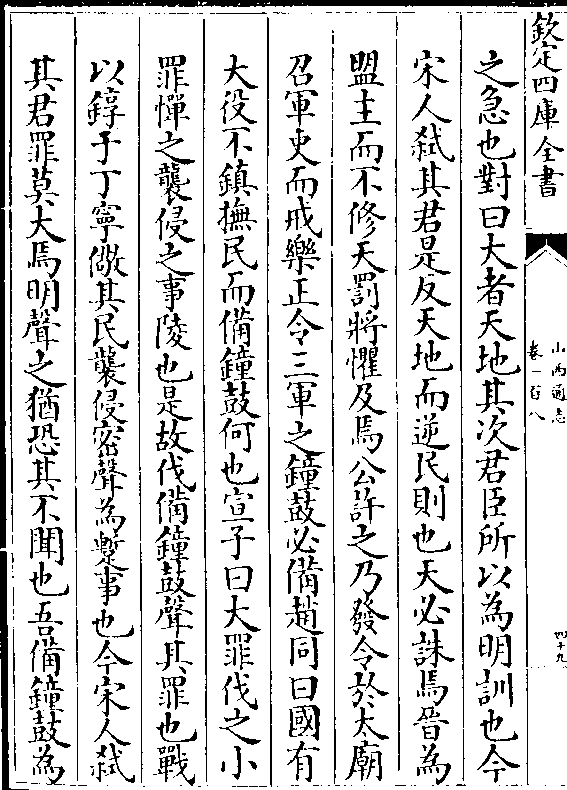 欽定四庫全書
山西通志
卷一百八
四十九
之急也對曰大者天地其次君臣所以為明訓也今
宋人弑其君是反天地而逆民則也天必誅焉晉為
盟主而不修天罰將懼及焉公許之乃發令於太廟
召軍吏而戒樂正令三軍之鐘鼓必備趙同曰國有
大役不鎮撫民而備鐘鼓何也宣子曰大罪伐之小
罪憚之襲侵之事陵也是故伐備鐘鼓聲其罪也戰
以錞于丁寧儆其民襲侵密聲為蹔事也今宋人弑
其君罪莫大焉明聲之猶恐其不聞也吾備鐘鼓為